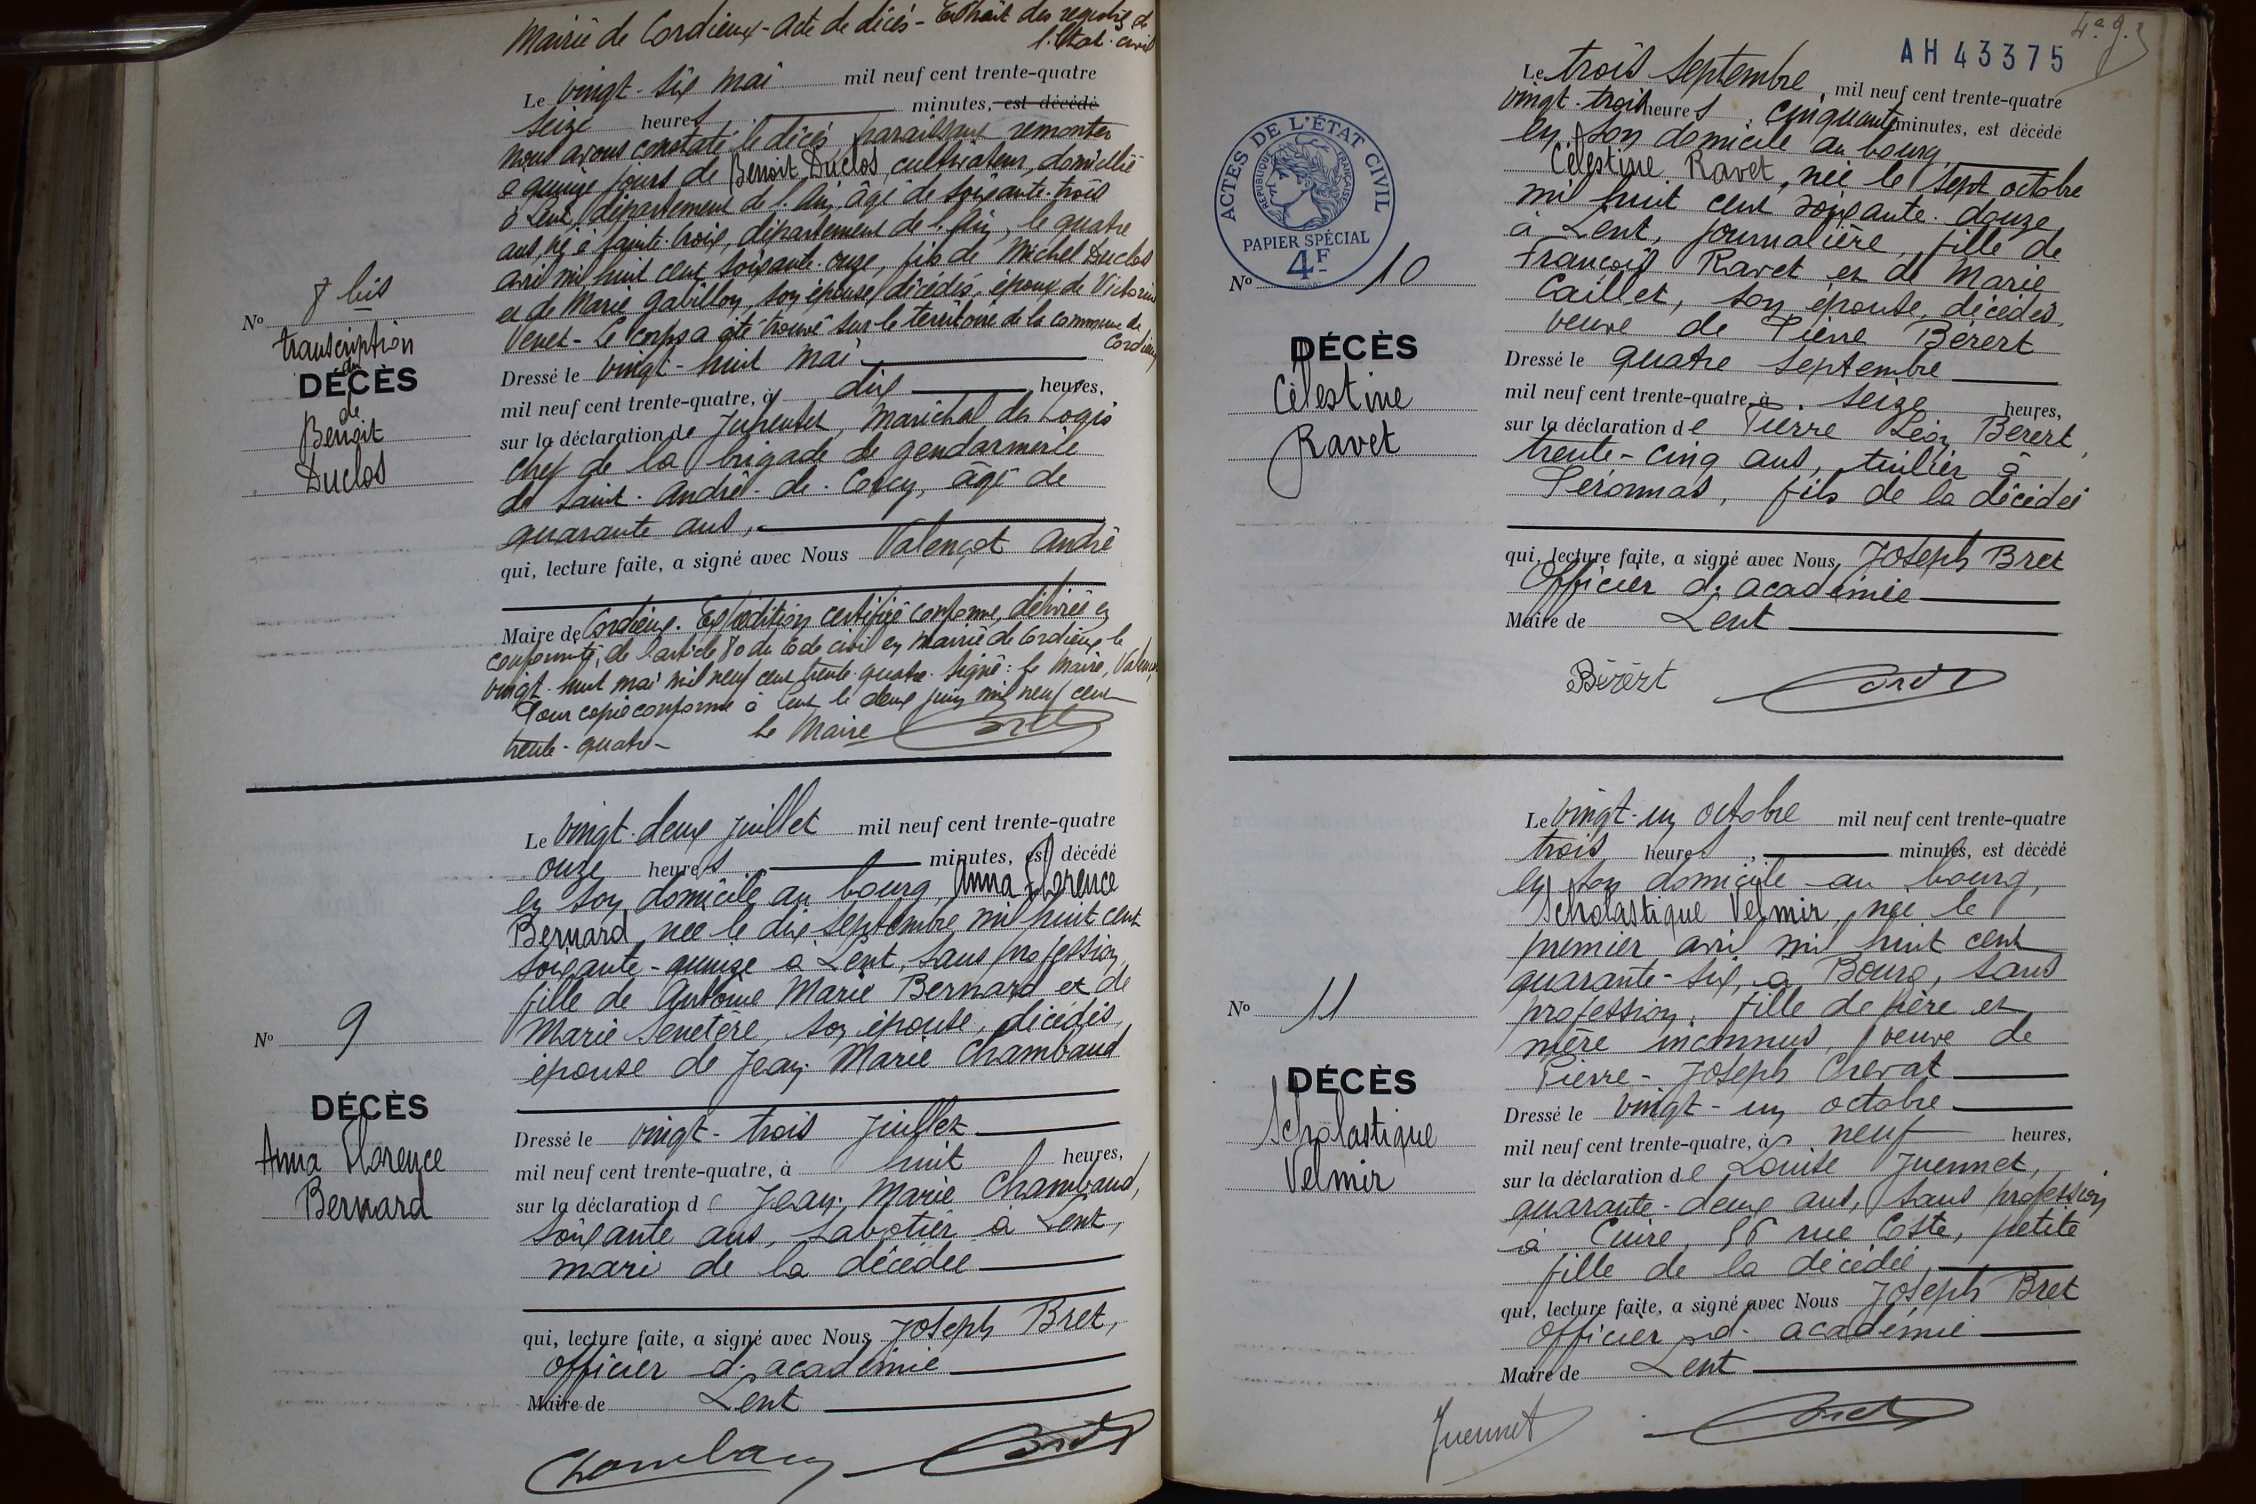 Mairie de Cordieux - Acte de décès - Extrait des registres de
l'Etat-civil
Le vingt-six mai mil neuf cent trente-quatre
seize heures minutes, est décédé
nous avons constaté le décès paraissant remonter
à quinze jours de Benoit Duclos, cultivateur, domicilié
à Lent, département de l'Ain, âgé de soixante-trois
ans, né à Sainte-Croix, département de l'Ain, le quatre
avril mil huit cent soixante-onze, fils de Michel Duclos
et de Marie Gabillon, son épouse, décédés, époux de Victorine
Venet - Le corps a été trouvé sur le territoire de la commune de
Cordieux
Dressé le vingt-huit mai
mil neuf cent trente-quatre, à dix heures,
sur la déclaration de Maréchal des Logis
chef de la brigade de gendarmerie
de Saint-André-de-Corcy, âgé de
quarante ans,
qui, lecture faite, a signé avec Nous Valençot André
Maire de Cordieux. Expédition certifiée conforme, délivrée en
conformité de l'article 80 du Code civil en mairie de Cordieux le
vingt-huit mai mil neuf cent trente-quatre. Signé: le Maire,
Pour copie conforme à Lent le deux juin mil neuf cent
trente-quatre - le Maire Bret
No 8 bis
transcription
du
DÉCÈS
de
Benoit
Duclos
Le vingt-deux juillet mil neuf cent trente-quatre
onze heures minutes, est décédé
en son domicile au bourg, Anna Florence
Bernard, née le dix septembre mil huit cent
soixante-quinze à Lent, sans profession,
fille de Antoine Marie Bernard et de
Marie Senetère, son épouse, décédés,
épouse de Jean-Marie Chambaud
Dressé le vingt-trois juillet
mil neuf cent trente-quatre, à huit heures,
sur la déclaration de Jean-Marie Chambaud,
soixante ans, sabotier à Lent,
mari de la décédée
qui, lecture faite, a signé avec Nous Joseph Bret,
officier d'académie
Maire de Lent
Bret
No 9
DÉCÈS
Anna Florence
Bernard
AH 43375
ACTES DE L'ÉTAT CIVIL
RÉPUBLIQUE FRANÇAISE
PAPIER SPÉCIAL
4F
No 10
DÉCÈS
Célestine
Ravet
Le trois septembre, mil neuf cent trente-quatre
vingt-trois heures, cinquante minutes, est décédé
en son domicile au bourg,
Célestine Ravet, née le sept octobre
mil huit cent soixante-douze
à Lent, journalière, fille de
François Ravet et de Marie
Caillet, son épouse, décédés,
veuve de Pierre Bérért
Dressé le quatre septembre
mil neuf cent trente-quatre, à seize heures,
sur la déclaration de Pierre Léon Bérért,
trente-cinq ans, tuilier à
Péronnas, fils de la décédée
qui, lecture faite, a signé avec Nous, Joseph Bret
Officier d'académie
Maire de Lent
Bérért Bret
Le vingt-un octobre mil neuf cent trente-quatre
trois heures, minutes, est décédé
en son domicile au bourg,
Scholastique Velmir, née le
premier avril mil huit cent
quarante-six, à Bourg, sans
profession, fille de père et
mère inconnus, veuve de
Pierre-Joseph Chevat
Dressé le vingt-un octobre
mil neuf cent trente-quatre, à neuf heures,
sur la déclaration de Louise Juennet,
quarante-deux ans, sans profession
à Cuire, 56 rue Coste, petite
fille de la décédée,
qui, lecture faite, a signé avec Nous Joseph Bret
officier d'académie
Maire de Lent
Juennet Bret
No 11
DÉCÈS
Scholastique
Velmir